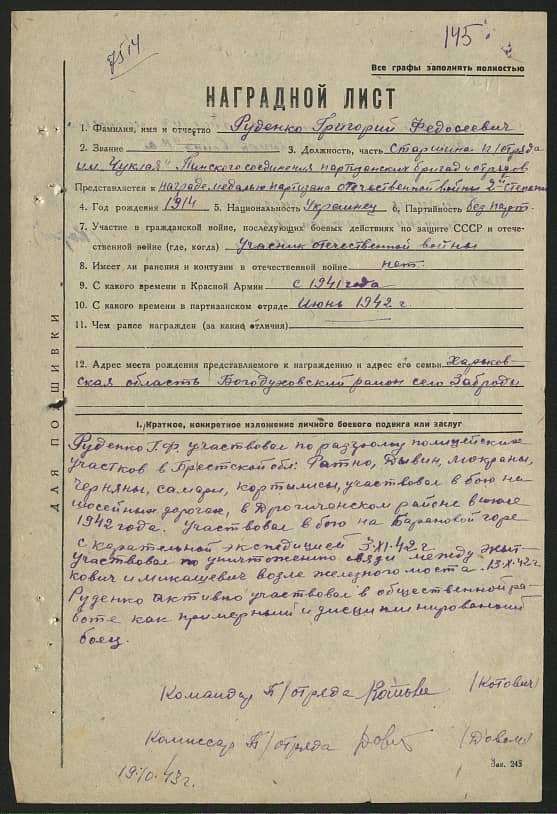 7514
145
Все графы заполнять полностью
НАГРАДНОЙ ЛИСТ
1. Фамилия, имя и отчество Руденко Григорий Федосеевич
2. Звание 3. Должность, часть Старшина п/отряда
им. Чуклая" Пинского соединения партизанских бригад и отрядов
Представляется к награде медалью партизана отечественной войны 2ой степени
4. Год рождения 1914 5. Национальность Украинец 6. Партийность без парт.
7. Участие в гражданской войне, последующих боевых действиях по защите СССР и отече-
ственной войне (где, когда) учасник отечественной войны
8. Имеет ли ранения и контузии в отечественной войне нет.
9. С какого времени в Красной Армии с 1941 года
10. С какого времени в партизанском отряде Июнь 1942 г.
11. Чем ранее награжден (за какие отличия)
12. Адрес места рождения представляемого к награждению и адрес его семьи Харьков-
ская область Богодуховский район село Заброди
ДЛЯ ПОДШИВКИ
I. Краткое, конкретное изложение личного боевого подвига или заслуг
Руденко Г.Ф. участвовал по разгрому полицейских
участков в Брестской обл: Ратно, Дывин, мокраны,
Черняны, самары, кортылисы, участвовал в бою на
шосейных дорогах, в Дрогичанском районе в июле
1942 года. Участвовал в бою на Барановой горе
с карательной экспедицией 3.XI.42 г.
участвовал по уничтожению связи между Жит-
кович и микашевич возле железного моста 13.X.42 г.
Руденко активно участвовал в общественной ра-
боте как примерный и дисциплинированый
боец.
Командир П/отряда (Котович)
Комиссар П/отряда
19.10.43 г.
Зак. 245